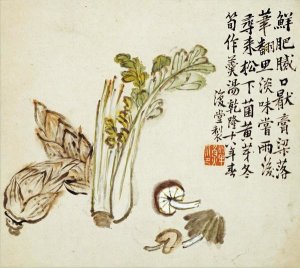 鮮肥膩口厭膏粱落
筆翻思淡味嘗雨後
尋來松下菌黃芽冬
筍作羹湯乾隆十八年春
復堂製